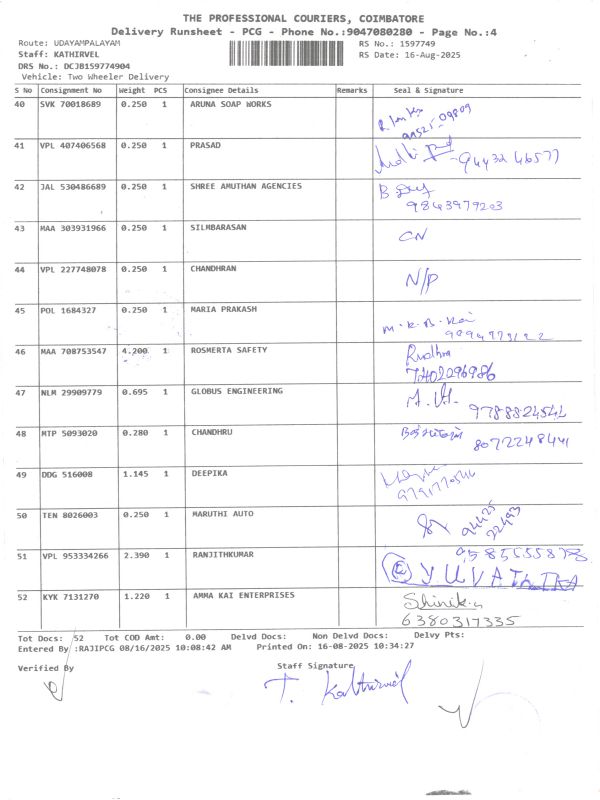 THE PROFESSIONAL COURIERS, COIMBATORE
Delivery Runsheet - PCG - Phone No.:9047080280 - Page No.:4
Route: UDAYAMPALAYAM RS No.: 1597749
Staff: KATHIRVEL RS Date: 16-Aug-2025
DRS No.: DCJB159774904
Vehicle: Two Wheeler Delivery
S No Consignment No Weight PCS Consignee Details Remarks Seal & Signature
40 SVK 70018689 0.250 1 ARUNA SOAP WORKS
41 VPL 407406568 0.250 1 PRASAD
42 JAL 530486689 0.250 1 SHREE AMUTHAN AGENCIES
9843979203
43 MAA 303931966 0.250 1 SILMBARASAN CN
44 VPL 227748078 0.250 1 CHANDHRAN N/P
45 POL 1684327 0.250 1 MARIA PRAKASH
46 MAA 708753547 4.200 1 ROSMERTA SAFETY Rudhra
7402096986
47 NLM 29909779 0.695 1 GLOBUS ENGINEERING
48 MTP 5093020 0.280 1 CHANDHRU
49 DDG 516008 1.145 1 DEEPIKA
50 TEN 8026003 0.250 1 MARUTHI AUTO
51 VPL 953334266 2.390 1 RANJITHKUMAR
52 KYK 7131270 1.220 1 AMMA KAI ENTERPRISES
6380317335
Tot Docs: 52 Tot COD Amt: 0.00 Delvd Docs: Non Delvd Docs: Delvy Pts:
Entered By :RAJIPCG 08/16/2025 10:08:42 AM Printed On: 16-08-2025 10:34:27
Verified By Staff Signature
T. Kathirvel